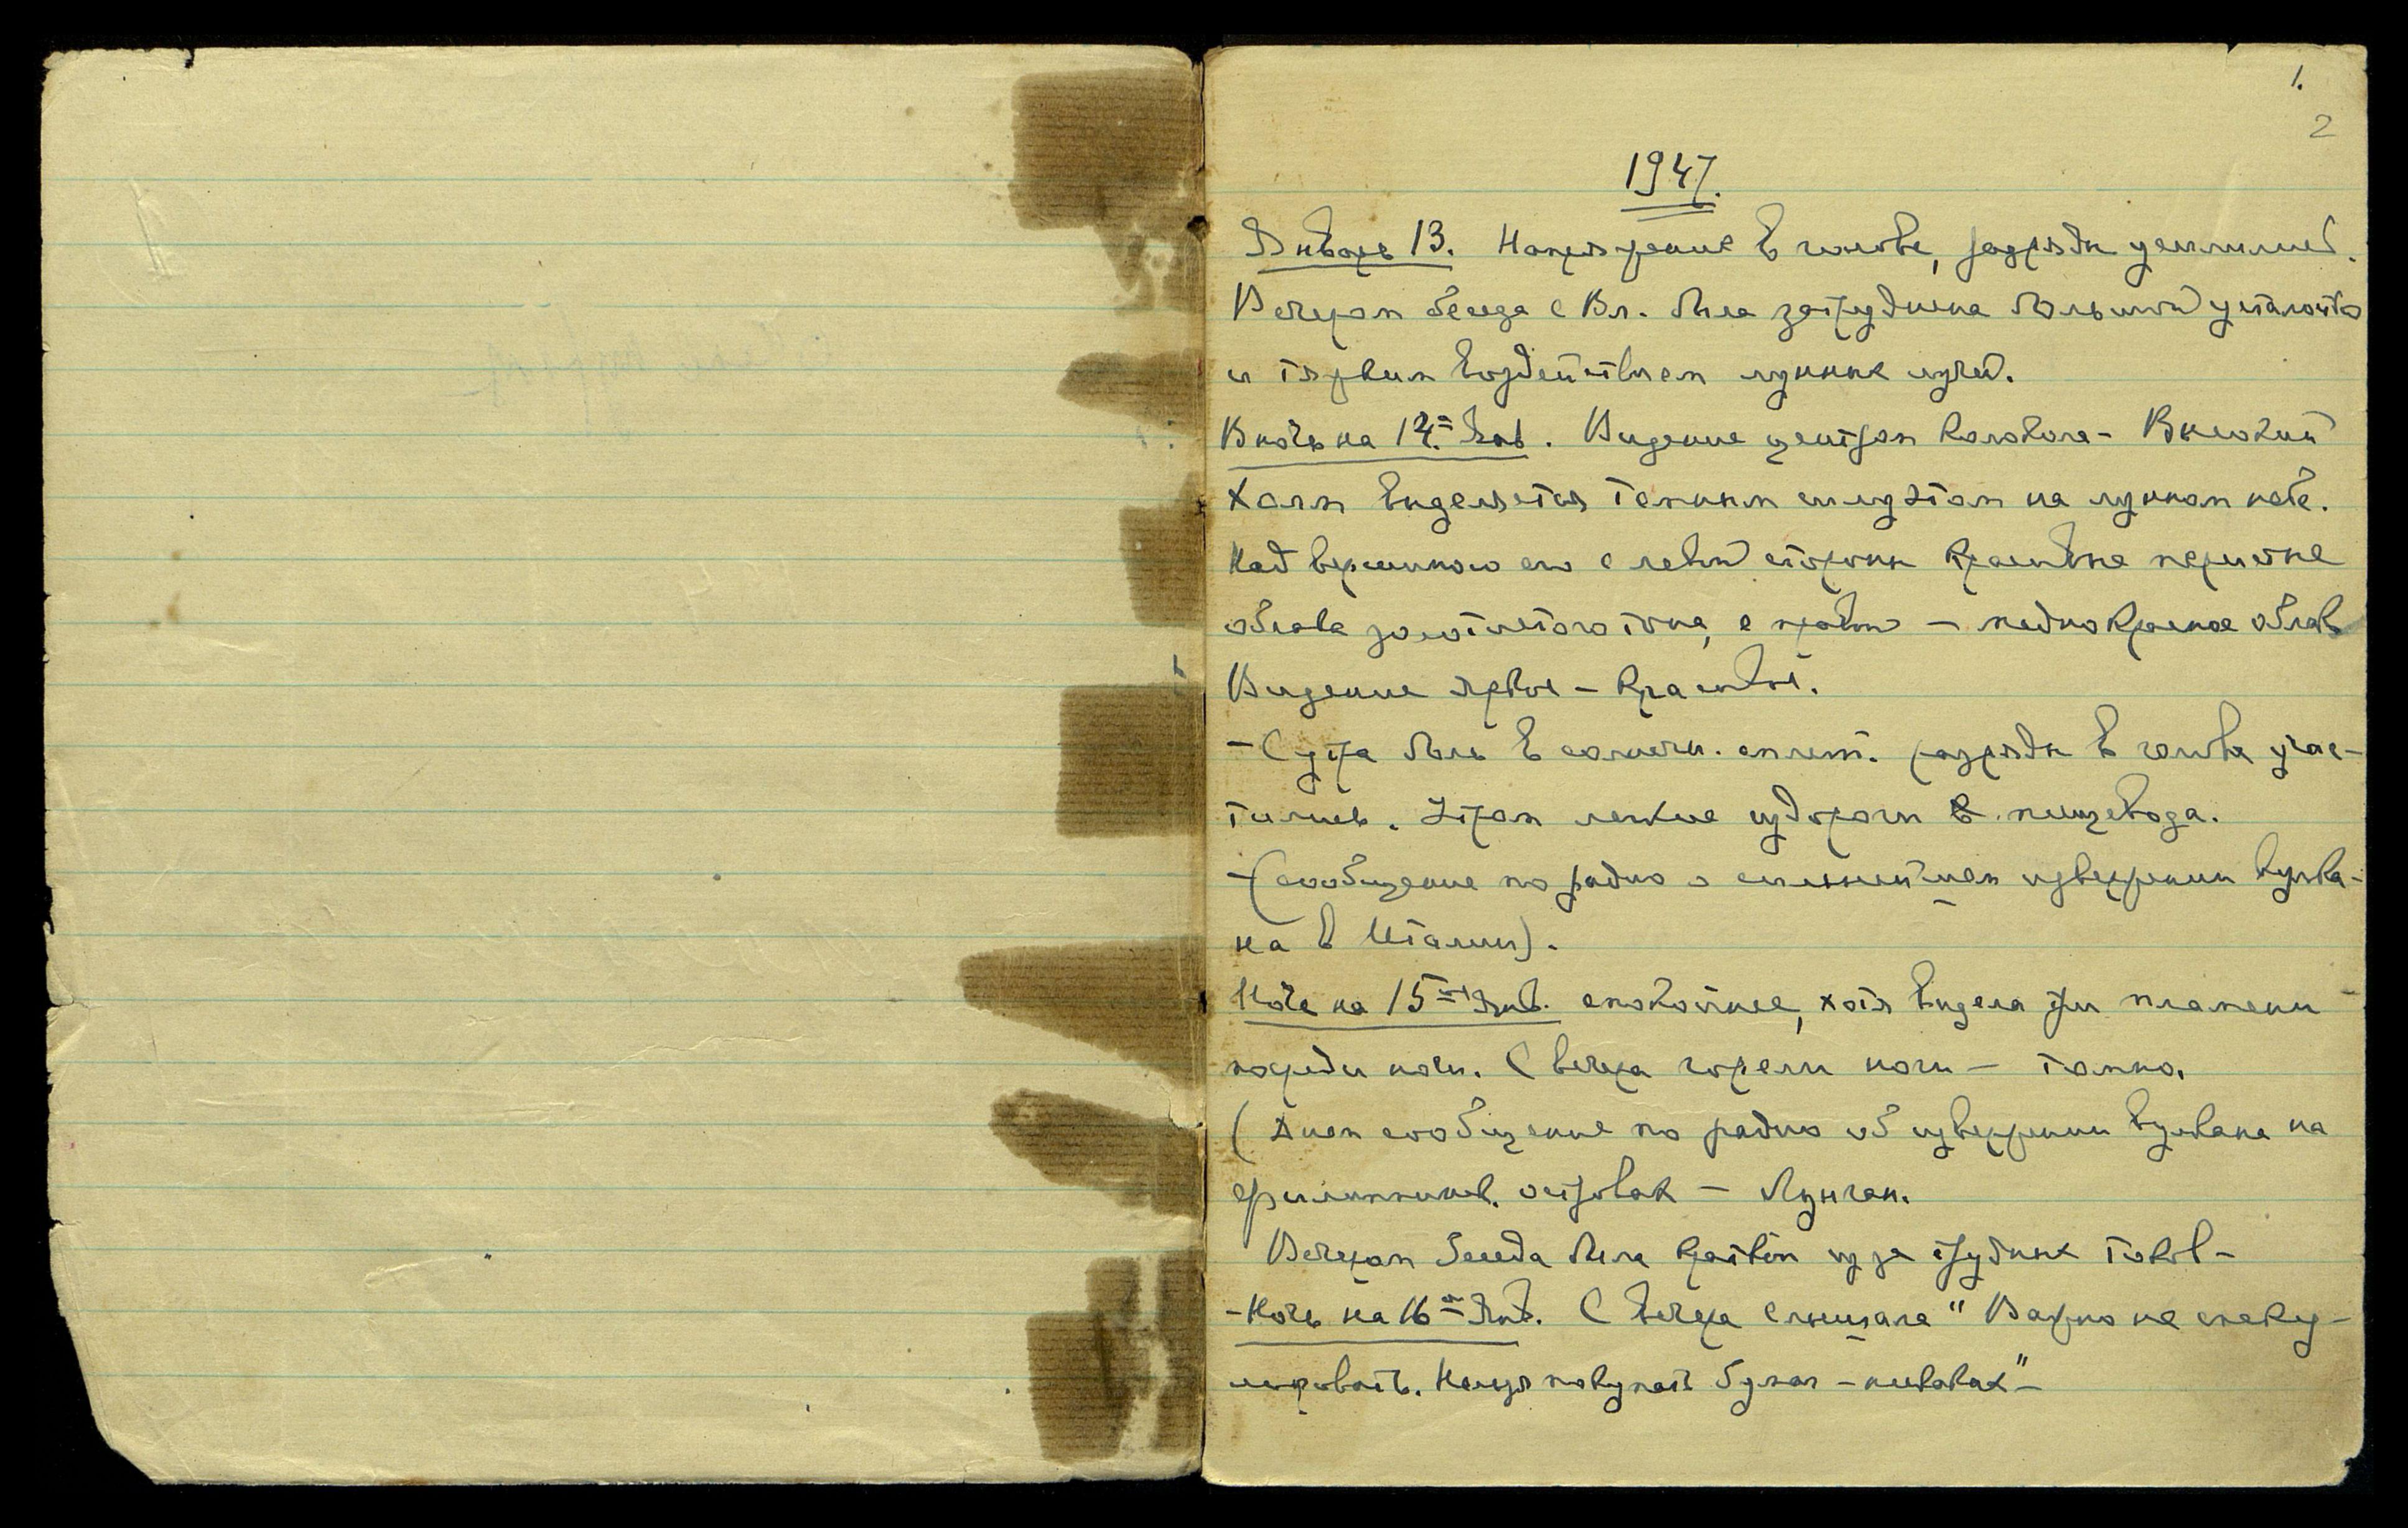 1.
2
1947.
Январь 13. Напряжение в голове, разряды усилились.
Вечером беседа с Вл. была затруднена большой усталостью
и тяжким воздействием лунных лучей.
В ночь на 14ое Янв. Видение центром колокола – Высокий
холм выделяется темным силуэтом на лунном небе.
Над вершиною его с левой стороны красивые перистые
облака золотистого тона, с правой – меднокрасное облако
Видение яркое – красивое.
– С утра боль в солнечн. сплет. разряды в голове учас-
тились. Утром легкие судороги пищевода.
– (сообщение по радио о сильнейшем извержении вулка-
на в Италии).
Ночь на 15ое Янв. спокойнее, хотя видела три пламени
посреди ночи. С вечера горели ноги – томно.
(Днем сообщение по радио об извержении вулкана на
филиппинск. островах – Лунган.
Вечером беседа была краткой из за трудных токов –
– Ночь на 16ое Янв. С вечера слышала "Важно не спеку-
лировать. Нельзя покупать бумаг – никаких" –